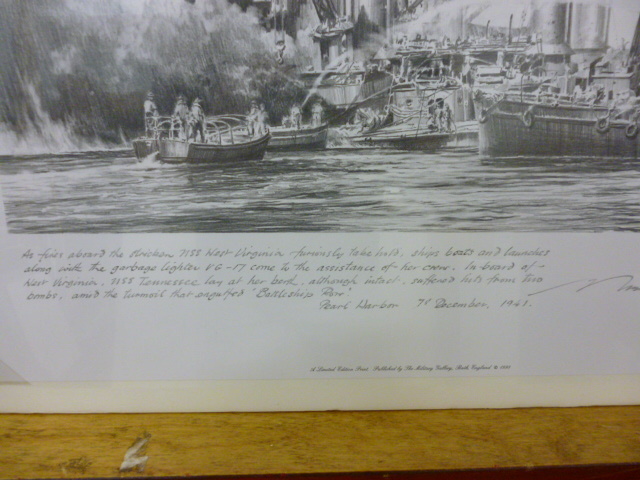 As fires aboard the stricken USS West Virginia furiously take hold, ships boats and launches
along with the garbage lighter YG-17 come to the assistance of her crew. In board of
West Virginia, USS Tennessee lay at her berth, although intact, suffered hits from two
bombs, amid the turmoil that engulfed 'Battleship Row'
Pearl Harbor 7th December, 1941.
A Limited Edition Print Published by The Military Gallery, Bath, England ©